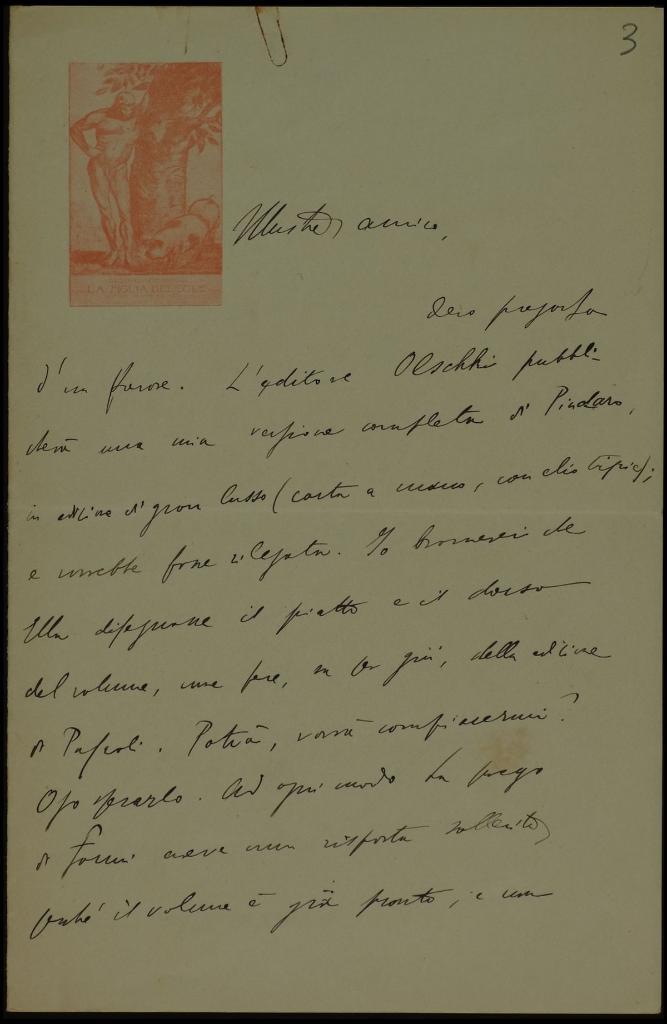 3
LA FIGLIA DEL SOLE
Illustre amico,
devo pregarla
d'un favore. L'editore Olschki pubbli-
cherà una mia versione completa di Pindaro,
in edizione di gran lusso (carta a mano, con clio tipici);
e vorrebbe forse rilegata. Io bramerei che
Ella disegnasse il piatto e il dorso
del volume, come fece, su per giù, della edizione
di Pascoli. Potrà, vorrà compiacermi?
Oso sperarlo. Ad ogni modo La prego
di farmi avere una risposta sollecita,
perché il volume è già pronto, e non